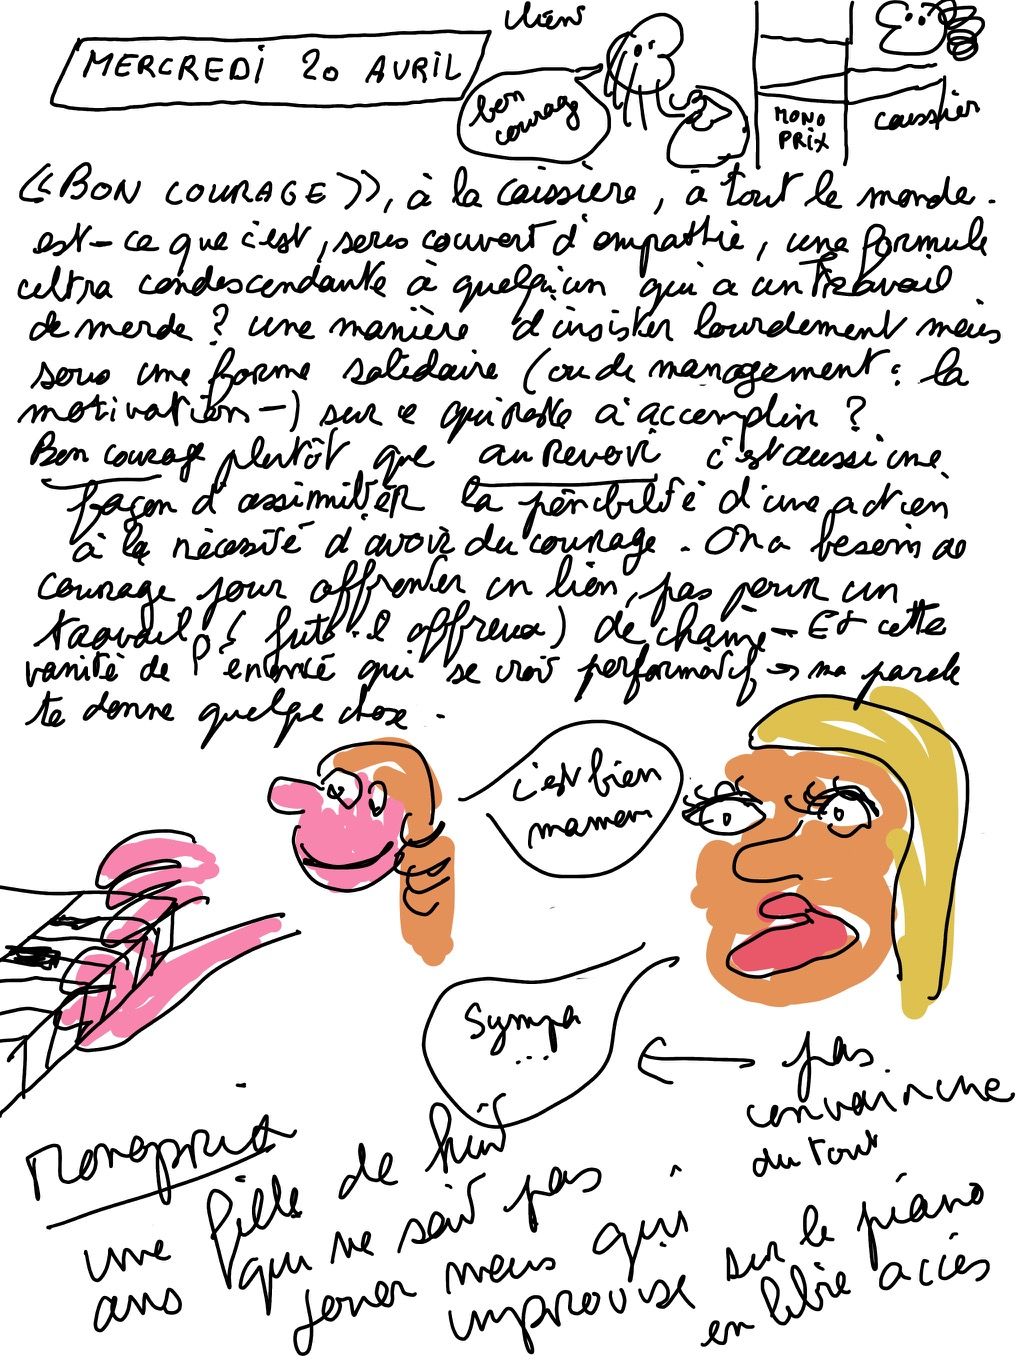 client
MERCREDI 20 AVRIL
bon
courage
MONO
PRIX
caissier
«BON COURAGE», à la caissière, à tout le monde.
est-ce que c'est, sous couvert d'empathie, une formule
ultra condescendante à quelqu'un qui a un travail
de merde ? une manière d'insister lourdement mais
sous une forme solidaire (ou de management : la
motivation-) sur ce qui reste à accomplir ?
Bon courage plutôt que au revoir c'est aussi une
façon d'assimiler la pénibilité d'une action
à la nécessité d'avoir du courage. On a besoin de
courage pour affronter un lion, pas pour un
travail (fut-il affreux) de chaîne - Et cette
vanité de l'énoncé qui se croit performatif → ma parole
te donne quelque chose.
c'est bien
maman
Sympa
...
pas
convaincue
du tout
Monoprix
une fille de huit
ans qui ne sait pas
jouer mais qui
improvise sur le piano
en libre accès